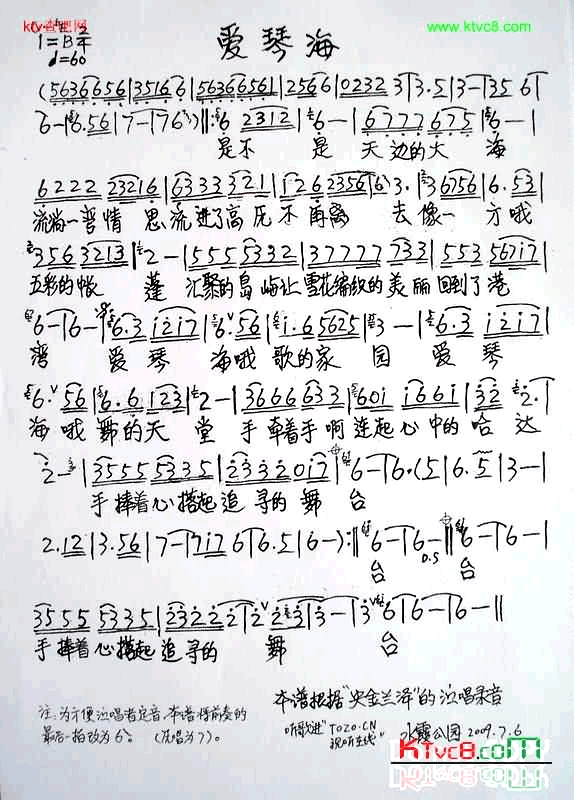 ktv查理网
www.ktvc8.com
1=B 2/4
♩=60
爱琴海
(5636 656|3516 6|5636 6561|256 6|0232 3|3·5|3-|35 6|
6-|6·56|7-|76)‖: 6 2312|6-|6777 675|6-|
是不 是 天边的大 海
6222 2321 6|6333 321|126 2356|3·|3 6756|6·53|
流淌一首情 思流进了高原不再离 去像一方哦
356 3213|2-|555 5332|37777 733|553 5671 7|
五彩的帐 蓬 汇聚的岛屿让雪花编织的美丽回到了港
6-|6-|6·3 i2i7|6·56|i·6 5625|3-|6·3 i2i7|
湾 爱琴 海哦歌的家 园 爱琴
6·56|6·6 123|2-|3666 633|60i i66i|32 2·|
海哦舞的天 堂 手牵着手啊连起心中的哈达
2-|3555 5335|23320i7|6-|6·(5|6·5|3-|
手捧着心搭起追寻的舞 台
2·12|3·56|7-|7i7 6|6·5|6-):‖6-|6-‖6-|6-|
0.5
台 台
3555 5335|2322 2|2 23|3-|3 6|6-|6-‖
手捧着心搭起追寻的 舞 台
本谱根据"央金兰泽"的泣唱录音
注:为方便泣唱者定音,本谱将前奏的
听歌进"TOZO.CN
最后一拍改为6。(泛唱为7)。
视听在线"
水霞公园 2009.7.6
KTvc8.com